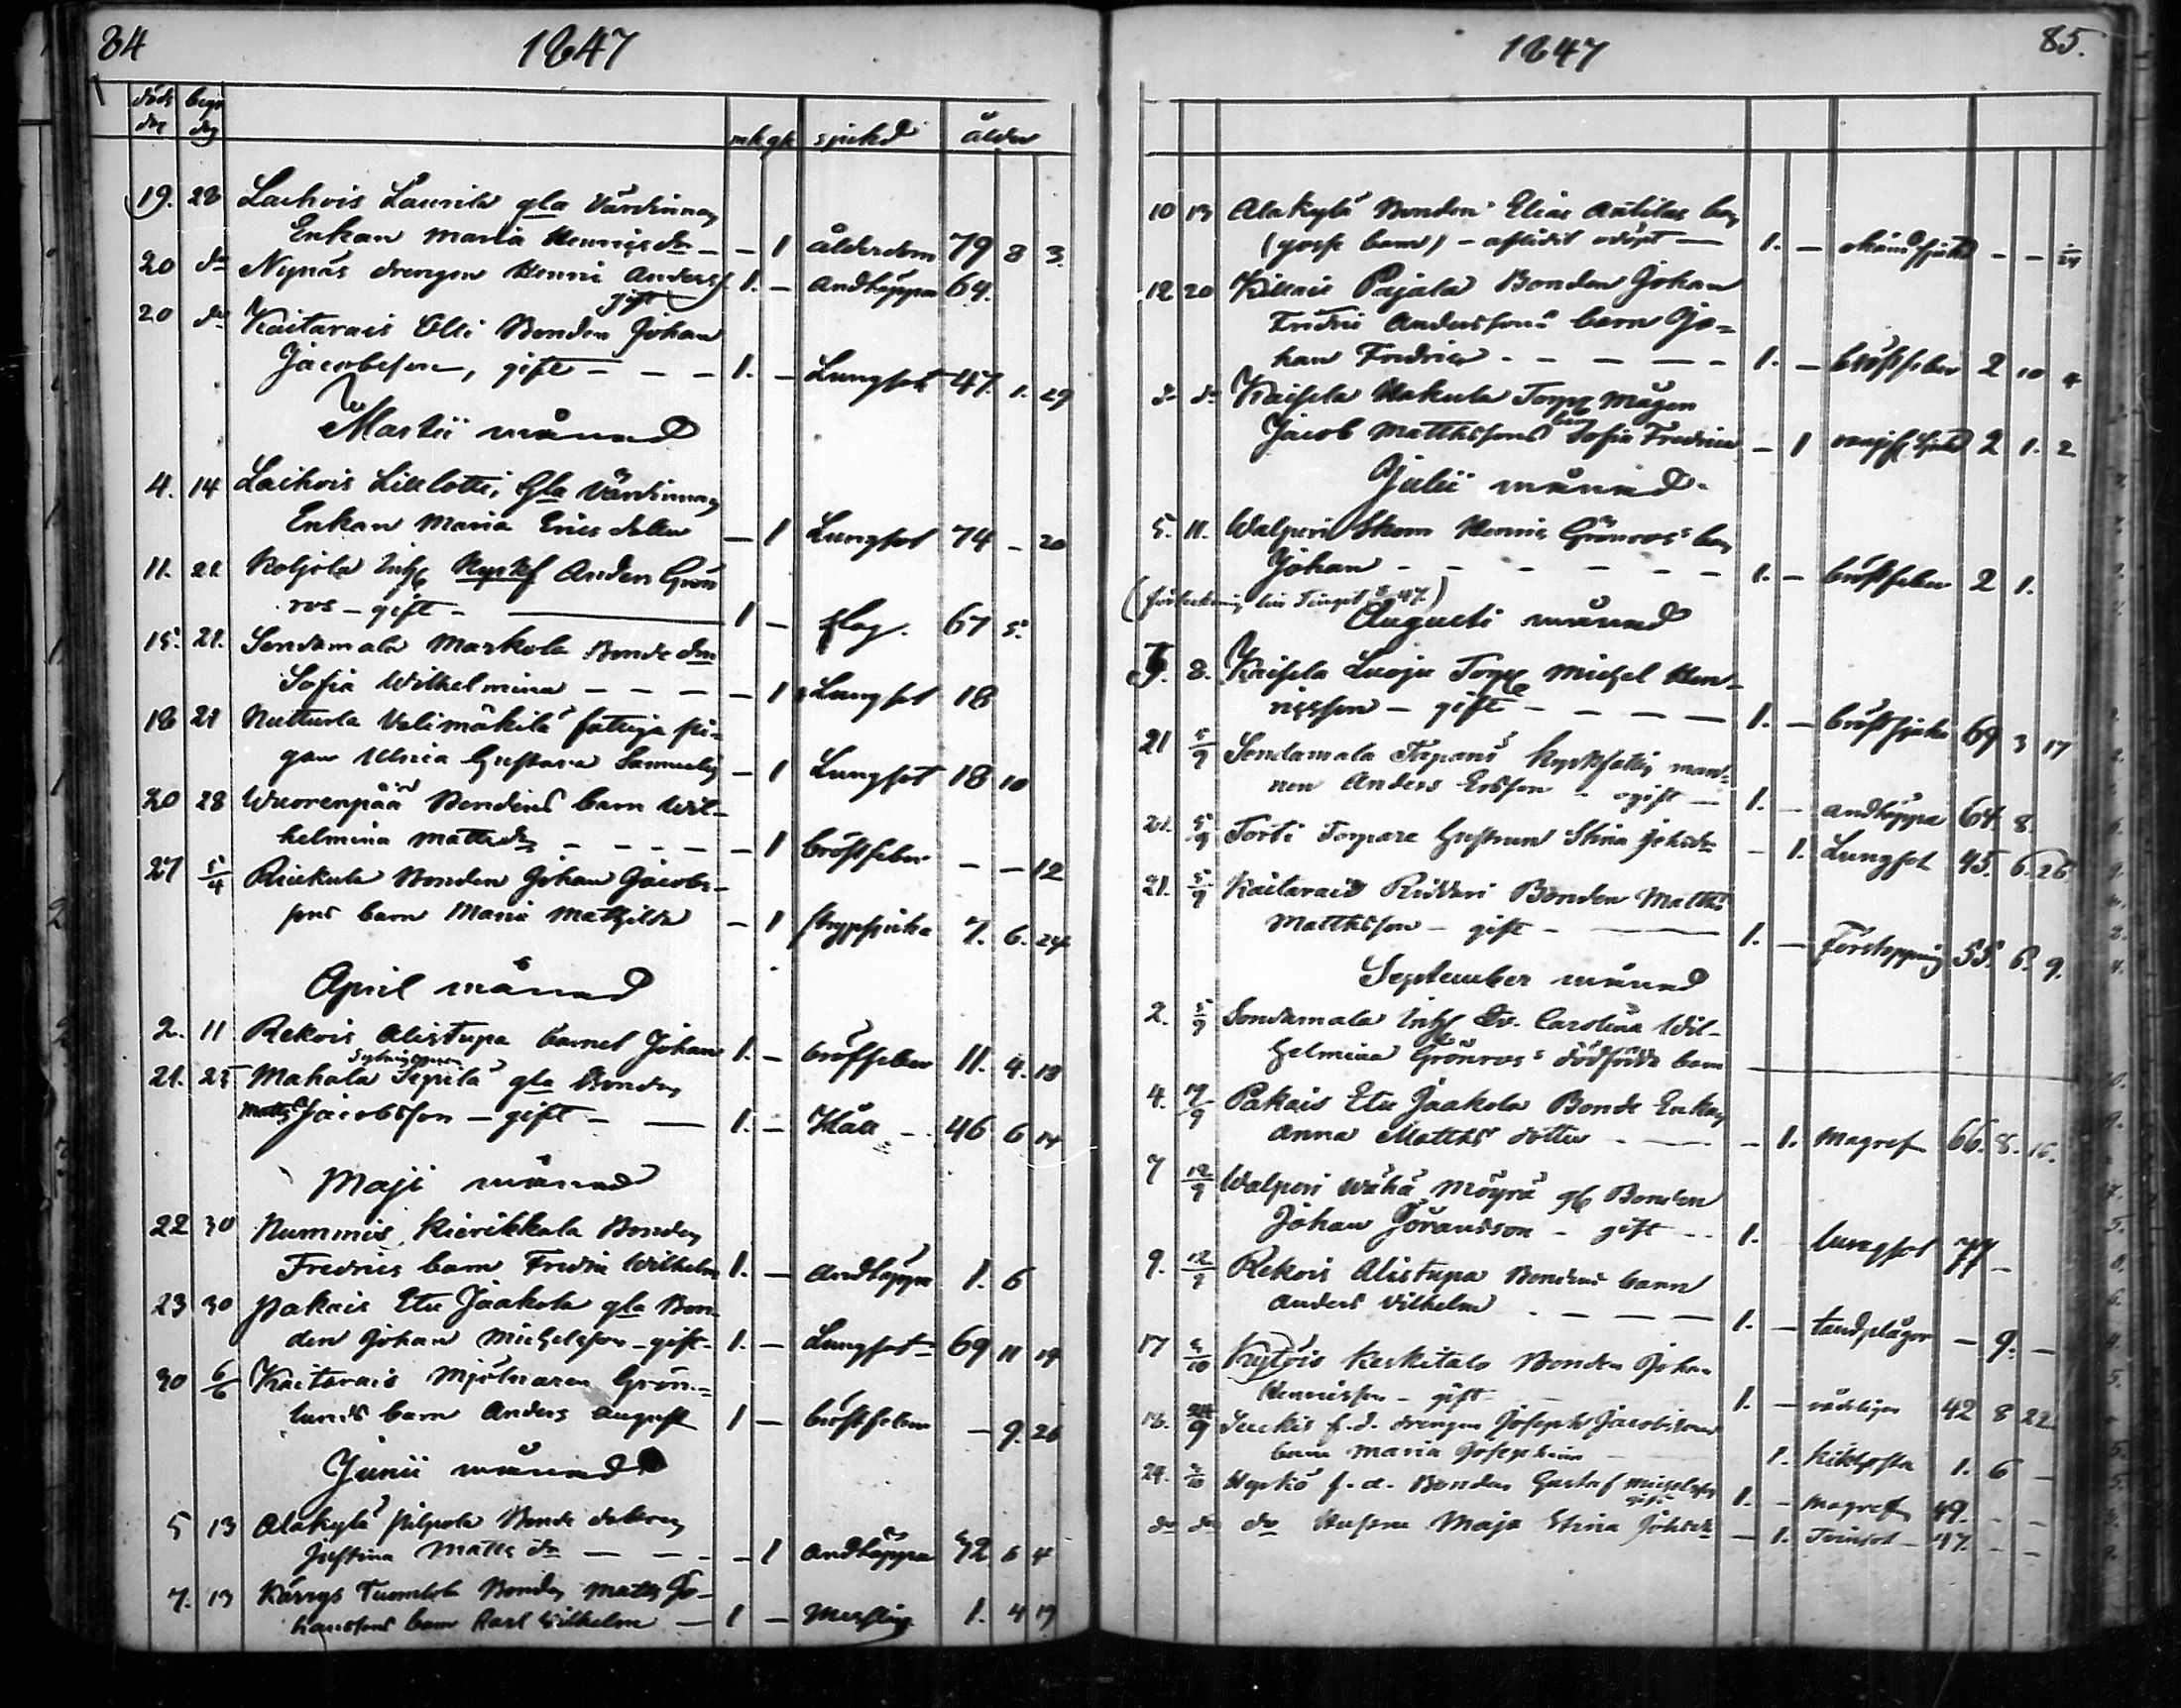 84 1847
döds dag begr dag mk qk sjukd ålder
19. 28 Laihois Laurila gla Värdinnan
Enkan Maria Henricsdr — — 1 ålderdom 79 8 3.
20 do Nynäs drengen Henric Anders
gift 1. — andtäppa 64.
20 do Kaitarais Olli Bonden Johan
Jacobsson, gift — — — 1. — Lungsot 47. 1. 29
Martii månad
4. 14 Laihois Lillotti, Gla Värdinnan
Enkan Maria Ericsdotter — 1 Lungsot 74 — 20
11. 21 Koljola Inh Kyrkf Anders Grön
ros — gift — 1 — slag. 67 5.
15. 21. Sondamala Markola Bonde dn
Sofia Wilhelmina — — — — 1 Lungsot 18
18 21 Nutturla Välimäkilä fattiga pi-
gan Ulrica Gustava Samuels — 1 Lungsot 18 10
20 28 Wuorenpää Bondens barn Wil-
helmina Mattsdr — — — — 1 bröstfeber — — 12
27 5/4 Riukula Bonden Johan Jacobs-
sons barn Maria Mathilda — 1 strypsjuka 7. 6. 24
April månad
2. 11 Rekois Alistupa barnet Johan 1. — bröstfeber 11. 4. 18
21. 25 Mahala Sepilä gla Bonden
Matts Jacobsson — gift — 1. — Håll — 46 6 14
Maji månad
22 30 Nummis Kierikkala Bonden
Fredrics barn Fredric Wilhelm 1. — andtäppa 1. 6
23 30 Pakais Etu Jaakola gla Bon-
den Johan Michelsson — gift — 1. — Lungsot 69 11 19
30 6/6 Kaitarais Mjölnaren Grön-
lunds barn Anders August 1 — bröstfeber — 9. 26
Junii månad
5 13 Alakylä Pilpola Bonde dottren
Justina Mattsdr — — — — 1 andtäppa 42 6 4
7. 13 Kärrys Tuomola Bonden Matts Jo-
hanssons barn Karl Wilhelm — 1 — Messling 1. 4 19
1847 85.
10 13 Alakylä Bonden Elias Anttilas
(gosse barn) — aflidit odöpt — 1. — okänd sjukd — —
12 20 Killais Pajala Bonden Johan
Fredric Anderssons barn Jo-
han Fredric — — — — — 1. — bröstfeber 2 10 4
do do Kaisela Hakula Torp Mågen
Jacob Matthssons barn Sofia Fredrica — 1 sjukd 2 1. 2
Julii månad.
5. 11. Walperi Skom Henric Grönros
Johan — — — — — — 1. — bröstfeber 2 1.
(förteckning till Tinget 47.)
Augusti månad
5. 8. Kaisela Luoju Torp Michel Hen-
ricsson — gift — — — — 1. — bröstsjuka 69 3 17
21 5/9 Sondamala Kyrkfattig man-
nen Anders Ersson — ogift — 1. — andtäppa 64. 8.
21. 5/9 Torti Torpare Hustrun Stina Johsdr — 1. Lungsot 45. 6. 26.
21. 5/9 Kaitarais Ridderi Bonden Matths
Matthsson — gift — 1. — Förstoppning 55. 6. 9.
September månad
2. 5/9 Sondamala Inh Carolina Wil-
helmina Grönros's dödfödda barn
4. 19/9 Pakais Etu Jaakola Bonde Enkan
Anna Matths dotter — — 1. magref 66. 8. 16.
7 12/9 Walperi Wähä Möyrä gl Bonden
Johan Göransson — gift — 1. lungsot 77 —
9. 12/9 Rekois Alistupa Bondens barn
Anders Vilhelm — — — — 1. — tandplågor — 9. —
17 3/10 Krytöis Keskitalo Bonden Johan
Henricsson — gift 1. — vådeligen 42 8 22.
18. 9 f.d. drengen Joseph Jacobssons
barn Maria Josephina — 1. Kikhosta 1. 6 —
24. 3/10 f.d. Bonden Gustaf Michelss
gift 1. — magref 49. — —
do do do Hustru Maja Stina Johsdr — 1. 47. — —